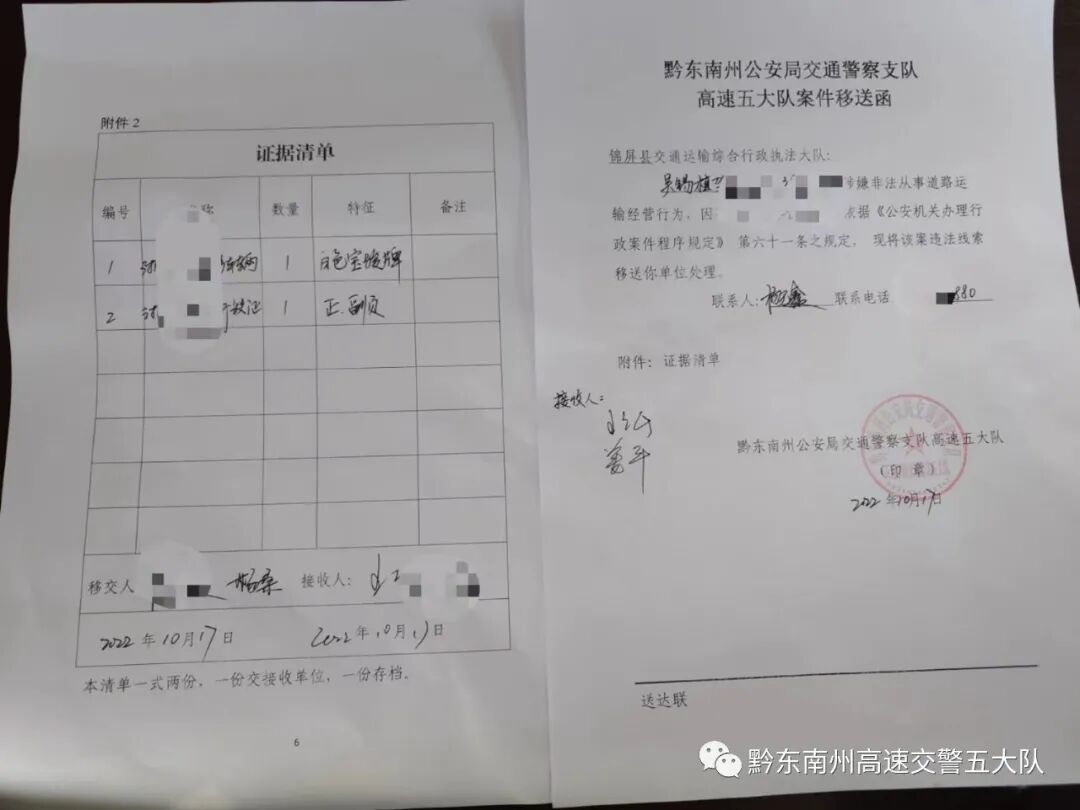 附件2
证据清单
编号 名称 数量 特征 备注
1 1 白色宝骏牌
2 1 正.副页
移交人 接收人:
2022年10月17日 2022年10月17日
本清单一式两份，一份交接收单位，一份存档.
6
黔东南州公安局交通警察支队
高速五大队案件移送函
锦屏县交通运输综合行政执法大队:
涉嫌非法从事道路运
输经营行为，因 依据《公安机关办理行
政案件程序规定》第六十一条之规定，现将该案违法线索
移送你单位处理。
联系人: 联系电话 880
附件: 证据清单
接收人:
黔东南州公安局交通警察支队高速五大队
(印 章)
2022年10月17日
送达联
黔东南州高速交警五大队